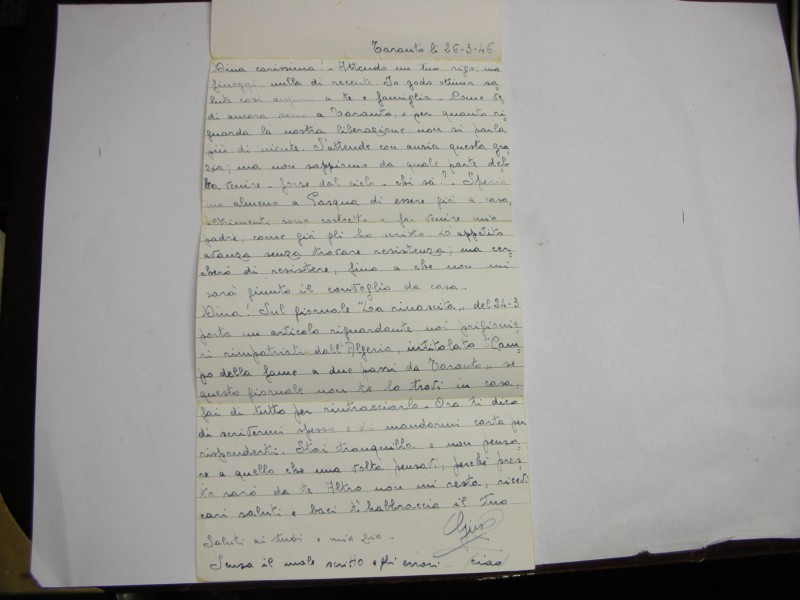 Taranto li 26-3-46
Dina carissima! - Attendo un tuo rigo, ma
finoggi, nulla di recente. Io godo ottima sa-
lute così auguro a te e famiglia - Come ve-
di ancora sono a Taranto, e per quanto ri-
guarda la nostra liberazione non si parla
più di niente. S'attende con ansia questa gra-
zia; ma non sappiamo da quale parte deb-
ba venire - forse dal cielo - chi sà? - Speria-
mo almeno a Pasqua di essere già a casa,
altrimenti sono costretto a far venire mio
padre, come già gli ho scritto. L'appetito
avanza senza trovare resistenza; ma cer-
cherò di resistere, fino a che non mi
sarà giunto il convoglio da casa -
Dina! Sul giornale "La rinascita,, del 24-3
porta un articolo riguardante noi prigionie-
ri rimpatriati dall'Algeria, intitolato "Cam-
po della fame a due passi da Taranto,, se
questo giornale non te lo trovi in casa,
fai di tutto per rintracciarlo - Ora ti dico
di scrivermi spesso e di mandarmi carta per
risponderti. Stai tranquilla e non pensa-
re a quello che una volta pensavi, perché pres-
to sarò da te Altro non mi resta, ricevi
cari saluti e baci t'habbraccia il tuo
Saluti ai tuoi e mia zia -
Scusa il male scritto e gli errori - ciao